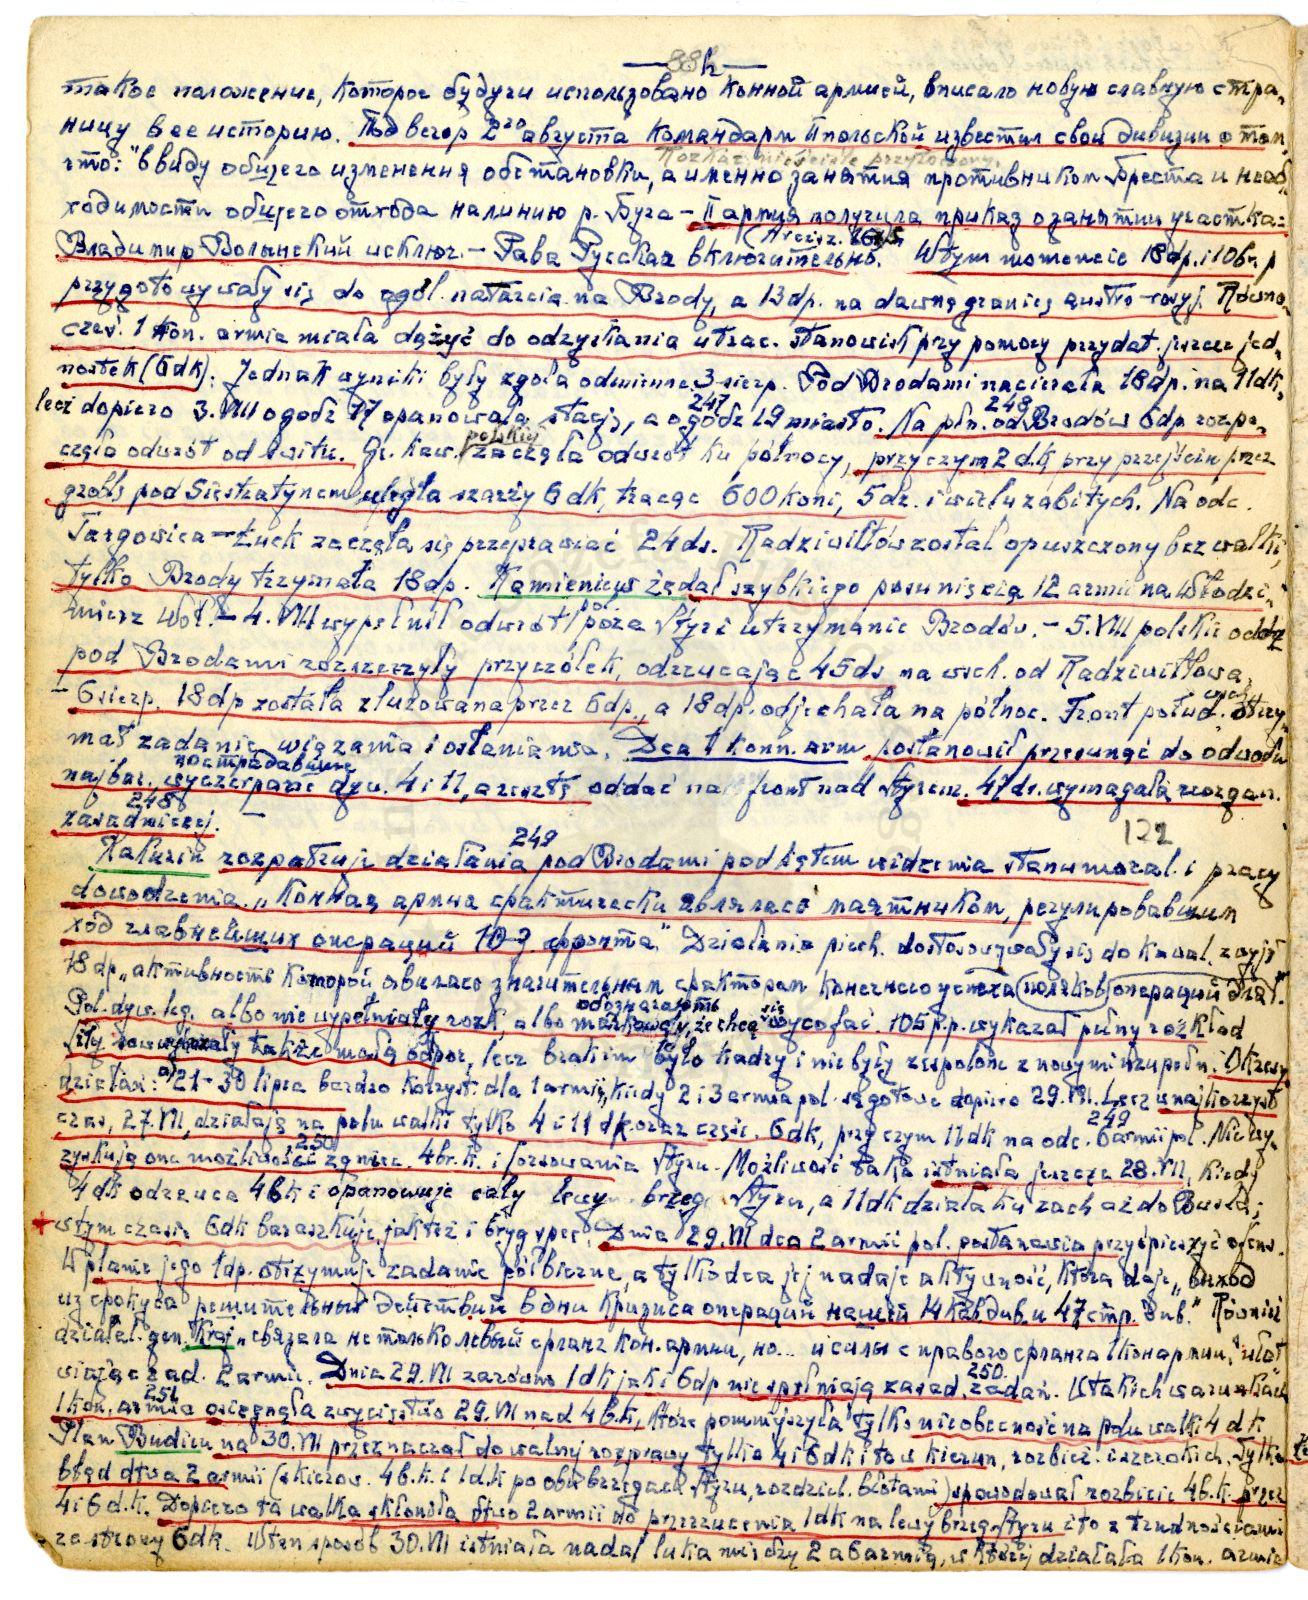 — 88h —
такое положение, которое будучи использовано Конной армией, вписало новую славную стра-
ницу в ее историю. Под вечер 2го августа командарм II польской известил свои дивизии о том,
что: "Ввиду общего изменения обстановки, а именно занятия противником Бреста и необ-
Rozkaz nieściśle przytoczony.
ходимости общего отхода на линию р. Буга – II армия получила приказ о занятии участка:
Владимир Волынский исключ. – Рава Русская включительно. W tym momencie 18 dp. i 10 br. p
przygotowywały się do ogól. natarcia na Brody, a 13 dp. na dawną granicę austro-rosyj. Równo-
cześ. 1 kon. armia miała dążyć do odzyskania utrac. stanowisk przy pomocy przydat. jeszcze jed-
nostek (6dk). Jednak wyniki były zgoła odmienne 3 sierp. Pod Brodami nacierała 18 dp. na 11 dk,
lecz dopiero 3.VIII o godz 17 opanowała stację, a o godz 19 miasto. 247 Na płn. od Brodów 6dp rozpo- 248
częła odwrót od świtu. Gr. kaw. polskiej zaczęła odwrót ku północy, przyczym 2 d.k przy przejściu przez
groblę pod Siestratynem uległa szarży 6 dk, tracąc 600 koni, 5 dz. i wielu zabitych. Na odc.
Targowica – Łuck zaczęła się przeprawiać 24 ds. Radziwiłłów został opuszczony bez walki,
tylko Brody trzymała 18 dp. Kamieniew żądał szybkiego posunięcia 12 armii na Włodzi-
mierz Woł. – 4.VIII wypełnił odwrót poza Styr i utrzymanie Brodów. – 5.VIII polskie oddz
pod Brodami rozszerzyły przyczółek, odrzucając 45 ds na wsch. od Radziwiłłowa,
– 6 sierp. 18 dp została zluzowana przez 6 dp., a 18 dp. odjechała na północ. Front połud. wsch. otrzy-
mał zadanie wiązania i osłaniania. Dca 1 konn. arm postanowił przesunąć do odwodu
najbar. wyczerpane dyw. 4 i 11, a resztę oddać na front nad Styrem. 47 ds. wymagała reorgan.
zasadniczej. 248 –
122
Kakurin rozpatruje działania pod Brodami pod kątem widzenia stanu moral. i pracy 249
dowodzenia. „Конная армия фактически являлась маятником, регулировавшим
ход главнейших операций Ю-З. фронта." Działania piech. dostosowywały się do kawal. z wyją
18 dp „активность которой явилась значительным фактором конечного успеха поляков операций 2пА".
Pol. dyw. kg. albo nie wypełniały rozk, albo markowały, że chcą się wycofać. 105 p.p. wykazał pełny rozkład
także małą odpor, lecz brak im było kadry i nie były zespolone z nowymi uzupełn. Okresy
działań: a) 21–30 lipca bardzo korzyst. dla 1 armii, kiedy 2 i 3 armia pol. są gotowe dopiero 29.VII. Lecz w najkorzyst
czas, 27.VII, działają na polu walki tylko 4 i 11 dk oraz częśc. 6dk, przy czym 11dk na odc. 6 armii pol. Nie wy- 249
zyskują one możliwości zgniec. 4 br.k. i forsowania Styru. Możliwość taka istniała jeszcze 28.VII, kiedy 250
4 dk odrzuca 4 bk i opanowuje cały lewy brzeg Styru, a 11 dk działa ku zach aż do Buska;
w tym czasie 6dk baraszkuje, jak też i bryg. spec. Dnia 29.VII dca 2 armii pol. postanawia przyśpieszyć ofens.
W planie jego 1 dp. otrzymuje zadanie półbierne, a tylko dca jej nadaje aktywność, która daje „выход
из фокуса решительных действий в дни кризиса операций нашей 14 кав див. и 47 стр. див." Również
działal. gen. Kraj. „связала не только левый фланг кон. армии, но... и силы с правого фланга 1 конармии," ułat
wiając zad. 2 armii. Dnia 29.VII zarówno 1dk jak i 6dp nie spełniają zasad. zadań. 250. W takich warunkach
1 kon. armia osiągnęła zwycięstwo 29.VII nad 4 b.k, które pomniejszyła tylko nieobecność na polu walki 4 dk. 251
Plan Budien na 30.VII przeznaczał do walnej rozprawy tylko 4 i 6 dk i to w kierun. rozbież. i szerokich. Tylko
błąd dtwa 2 armii (skierow. 4 b.k. i 1d.k po obu brzegach Styru, rozdziel. błotami) spowodował rozbicie 4 b.k. przez
4 i 6 d.k. Dopiero ta walka skłoniła dtwo 2 armii do przerzucenia 1 dk na lewy brzeg Styru i to z trudnościami
ze strony 6 dk. W ten sposób 30.VII istniała nadal luka między 2 a 6 armią, w której działała 1 kon. armia